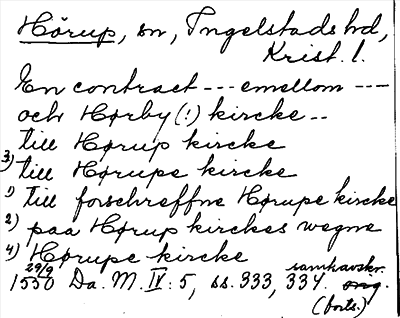 Hörup, sn, Ingelstads hd,
Krist. l.
En contract --- emellom ---
och Hørby (!) kircke --
till Hørup kircke
3) till Hørupe kircke
1) till forschreffne Hørupe kircke
2) paa Hørup kirckes wegne
4) Hørupe kircke
1550 29/9 Da. M. IV: 5, ss. 333, 334. samhavskr.
(forts.)